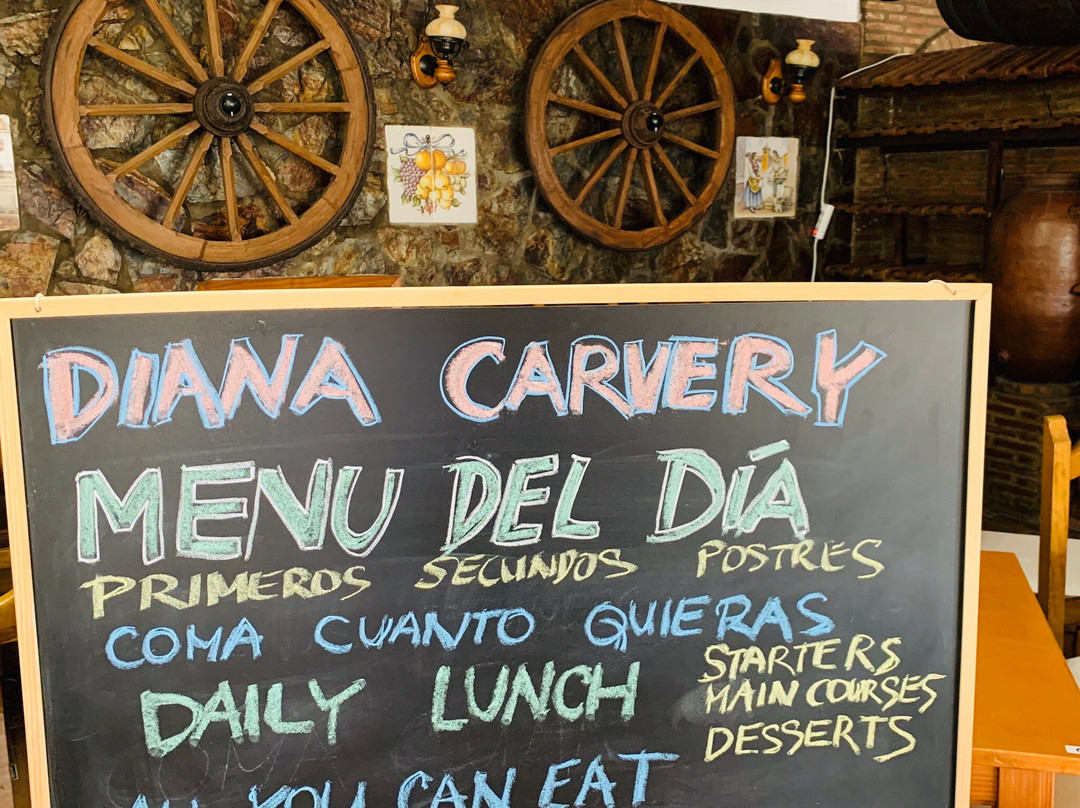 DIANA CARVERY
MENU DEL DÍA
PRIMEROS SECUNDOS POSTRES
COMA CUANTO QUIERAS
DAILY LUNCH
STARTERS
MAIN COURSES
DESSERTS
ALL YOU CAN EAT